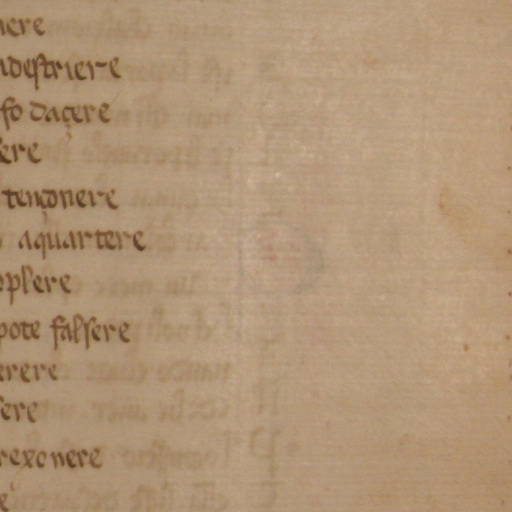 nere
ndestriere
fo daçere
sere
tençonere
aquartere
oplere
pote falsere
erere
sere
rexonere
e